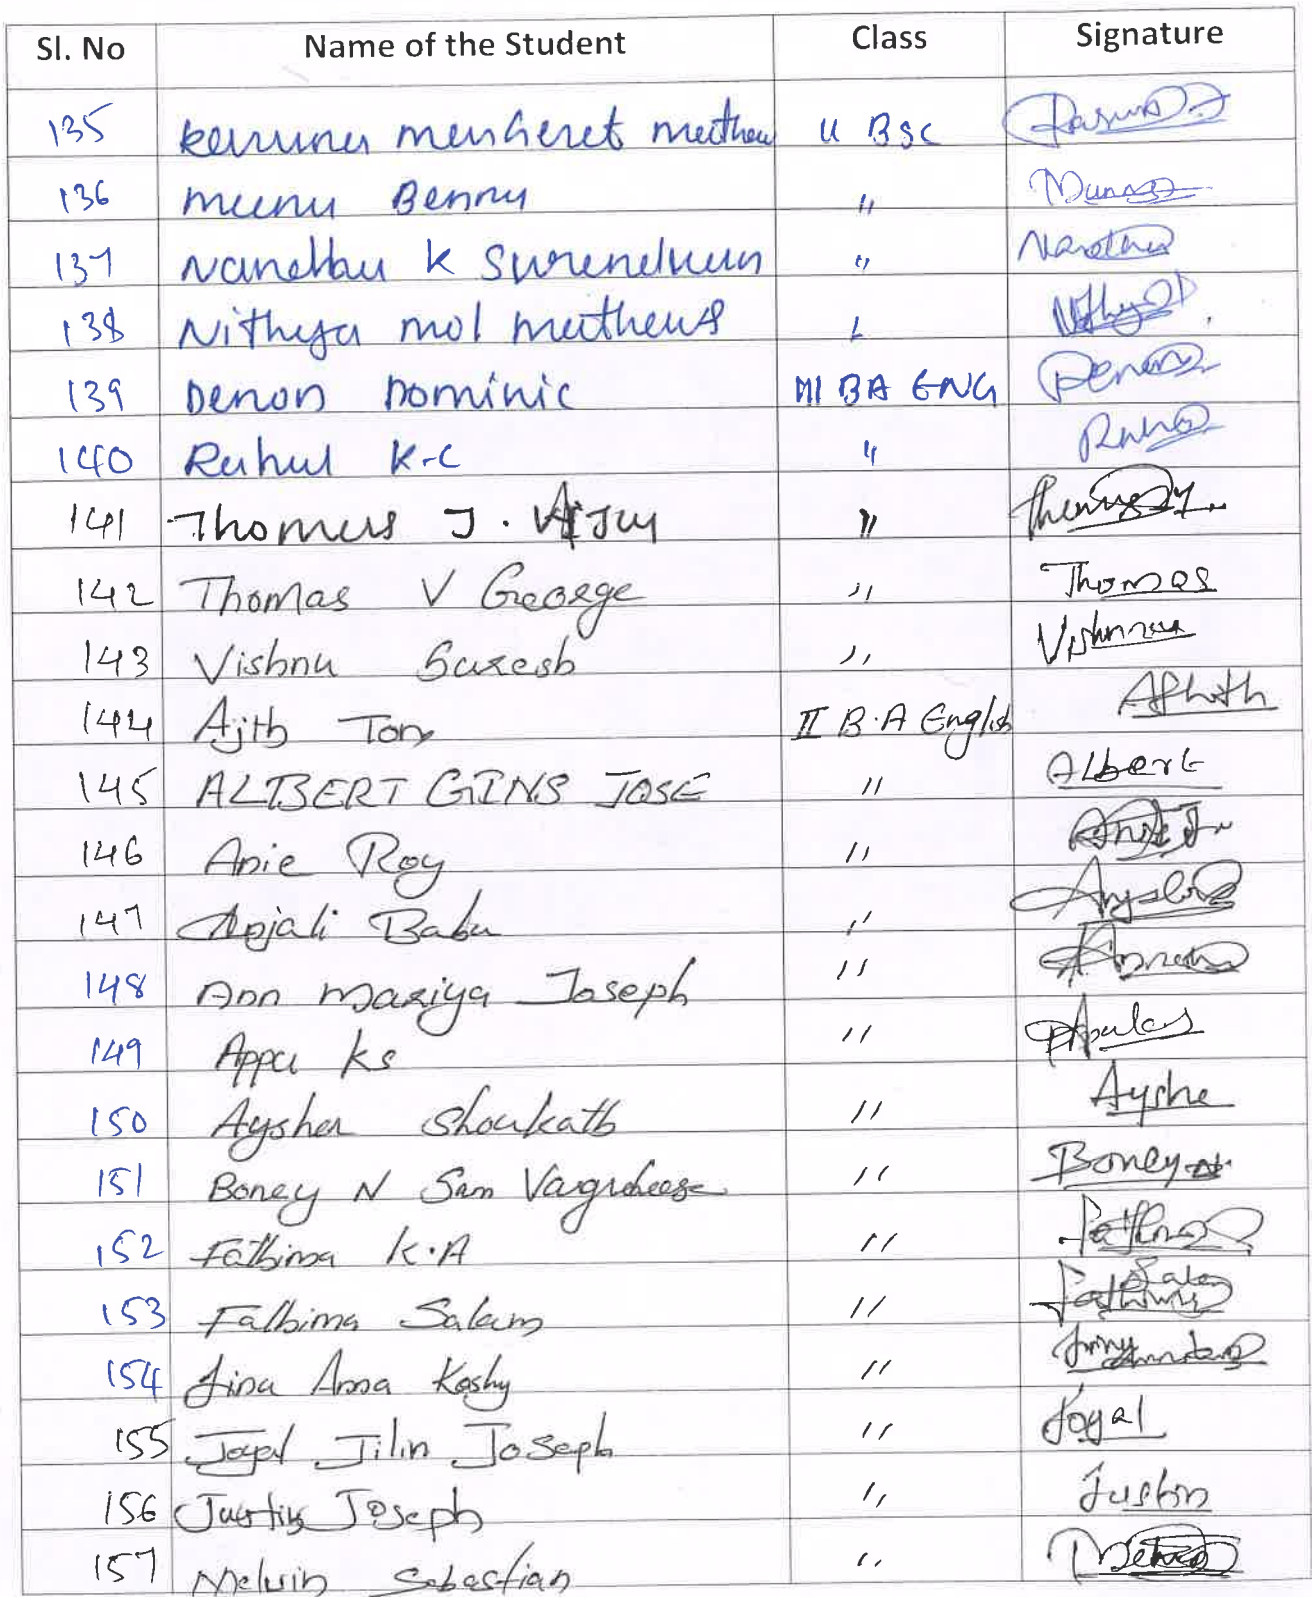 Sl. No Name of the Student Class Signature
135 Karuna Margeret Mathew II BSC
136 Meenu Benny "
137 Nandhu K Surendran "
138 Nithya mol Mathews
139 Denon Dominic III BA ENG
140 Rahul K.C "
141 Thomas J. "
142 Thomas V George " Thomas
143 Vishnu Suresh "
144 Ajith Tom II B.A English
145 ALBERT GINS JOSE " Albert
146 Anie Roy "
147 Anjali Babu "
148 Ann Mariya Joseph "
149 Appu KS "
150 Aysha Shoukath " Aysha
151 Boney N Sam " Boney N
152 Fathima K.A "
153 Fathima Salam "
154 Jina Anna Koshy "
155 Joyal Jilin Joseph " Joyal
156 Justin Joseph " Justin
157 Melvin Sebastian "